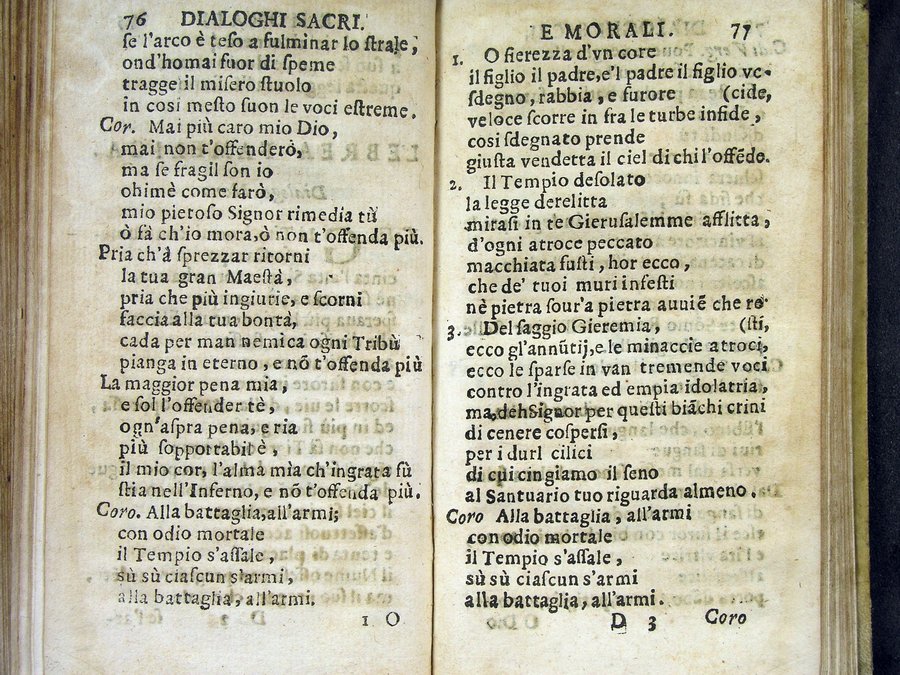 76 DIALOGHI SACRI.
se l'arco è teso a fulminar lo strale,
ond'homai fuor di speme
tragge il misero stuolo
in cosi mesto suon le voci estreme.
Cor. Mai più caro mio Dio,
mai non t'offenderò,
ma se fragil son io
ohimè come farò,
mio pietoso Signor rimedia tù
ò fà ch'io mora, ò non t'offenda più.
Pria ch'à sprezzar ritorni
la tua gran Maestà,
pria che più ingiurie, e scorni
faccia alla tua bontà,
cada per man nemica ogni Tribù
pianga in eterno, e nõ t'offenda più
La maggior pena mia,
e sol l'offender tè,
ogn'aspra pena, e ria
più sopportabil è,
il mio cor, l'alma mia ch'ingrata fù
stia nell'Inferno, e nõ t'offenda più.
Coro. Alla battaglia, all'armi;
con odio mortale
il Tempio s'assale,
sù sù ciascun s'armi,
alla battaglia, all'armi.
1 O
E MORALI. 77
1. O fierezza d'vn core
il figlio il padre, e'l padre il figlio vc-
sdegno, rabbia, e furore (cide,
veloce scorre in fra le turbe infide,
cosi sdegnato prende
giusta vendetta il ciel di chi l'offẽde.
2. Il Tempio desolato
la legge derelitta
mirasi in te Gierusalemme afflitta,
d'ogni atroce peccato
macchiata fusti, hor ecco,
che de' tuoi muri infesti
nè pietra sour'a pietra auuiẽ che re-
3. Del saggio Gieremia, (sti,
ecco gl'annũtij, e le minaccie atroci,
ecco le sparse in van tremende voci
contro l'ingrata ed empia idolatria,
ma, deh Signor per questi biãchi crini
di cenere cospersi,
per i durI cilici
di cui cingiamo il seno
al Santuario tuo riguarda almeno.
Coro Alla battaglia, all'armi
con odio mortale
il Tempio s'assale,
sù sù ciascun s'armi
alla battaglia, all'armi.
D 3 Coro